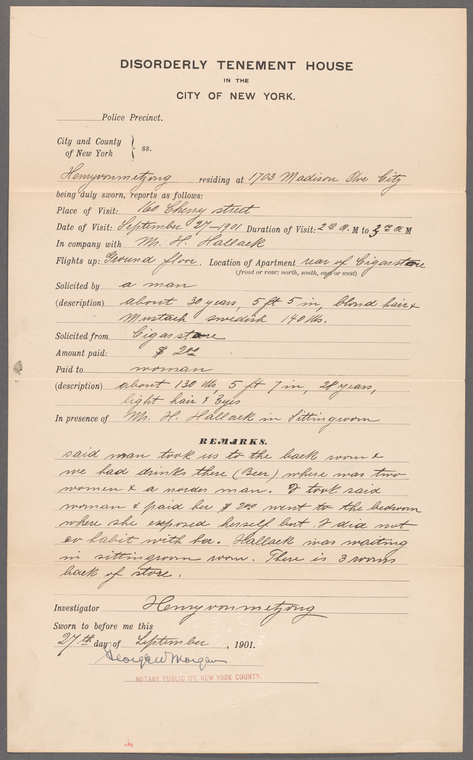 DISORDERLY TENEMENT HOUSE
IN THE
CITY OF NEW YORK.
Police Precinct.
City and County
of New York } ss.
Henryvonmetzong residing at 1703 Madison Ave City
being duly sworn, reports as follows:
Place of Visit: 160 Cherry street
Date of Visit: September 27–1901 Duration of Visit: 2 M to 3 M
In company with Mr. H. Hallack
Flights up: Ground floor. Location of Apartment rear of Cigarstore
(front or rear: north, south, east or west)
Solicited by a man
(description) about 30 years, 5 ft 5 in, blond hair &
Mustach swedish 140 lbs.
Solicited from Cigarstore
Amount paid: $ 2.00
Paid to woman
(description) about 130 lbs, 5 ft 7 in, 28 years,
light hair & Eyes
In presence of Mr. H. Hallack in Sittingroom
REMARKS.
said man took us to the back room &
we had drinks there (Beer) where was two
women & a man. I took said
woman & paid her $ 2.00 went to the bedroom
where she exposed herself but I did not
co habit with her. Hallack was waiting
in sittingroom room. There is 3 rooms
back of store.
Investigator Henryvonmetzong
Sworn to before me this
27th day of September, 1901.
George W Morgan
NOTARY PUBLIC NEW YORK COUNTY.